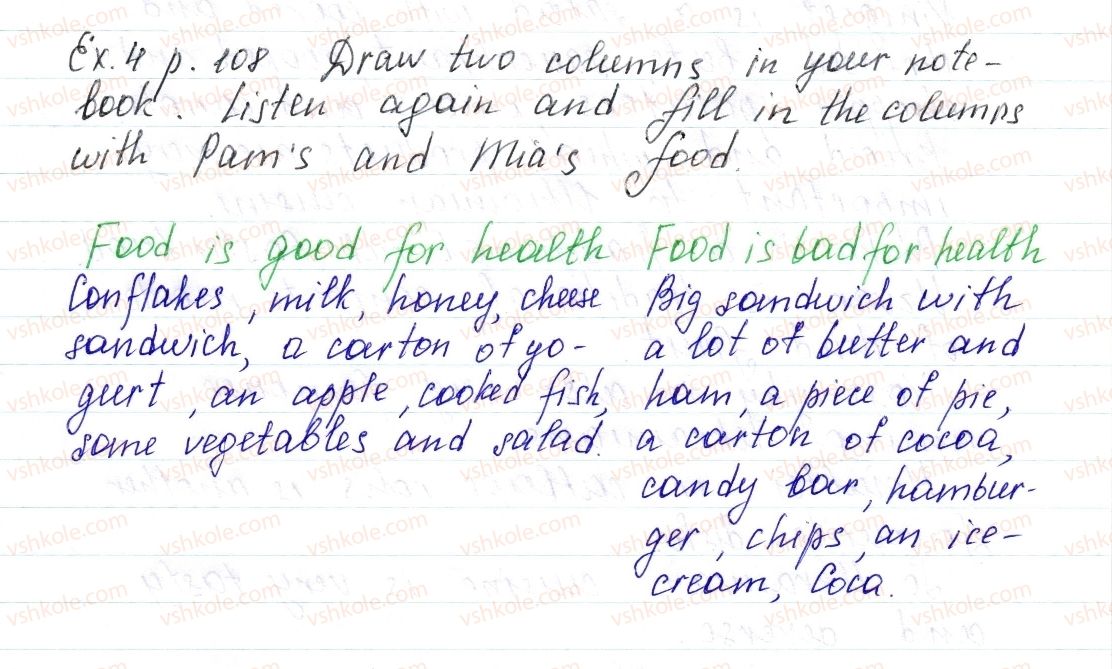 Ex. 4 p. 108 Draw two columns in your note-
book. Listen again and fill in the columns
with Pam's and Mia's food.
Food is good for health
Conflakes, milk, honey, cheese
sandwich, a carton of yo-
gurt, an apple, cooked fish,
some vegetables and salad.
Food is bad for health
Big sandwich with
a lot of butter and
ham, a piece of pie,
a carton of cocoa,
candy bar, hambur-
ger, chips, an ice-
cream, Coca.
vshkole.com